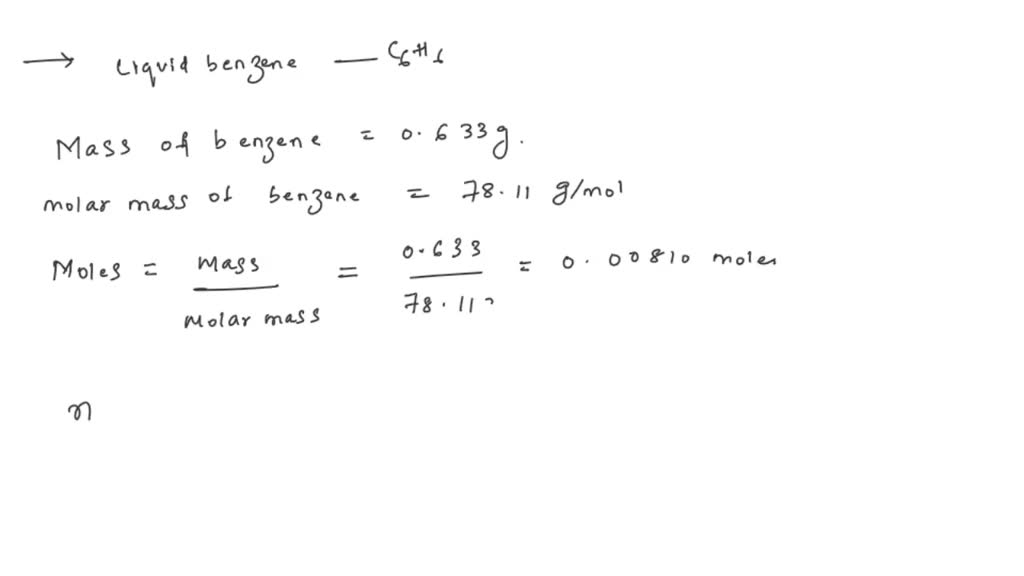 → Liquid benzene — C6H6
Mass of benzene = 0.633g.
molar mass of benzane = 78.11 g/mol
Moles = Mass / Molar mass = 0.633 / 78.11 = 0.00810 moles
n